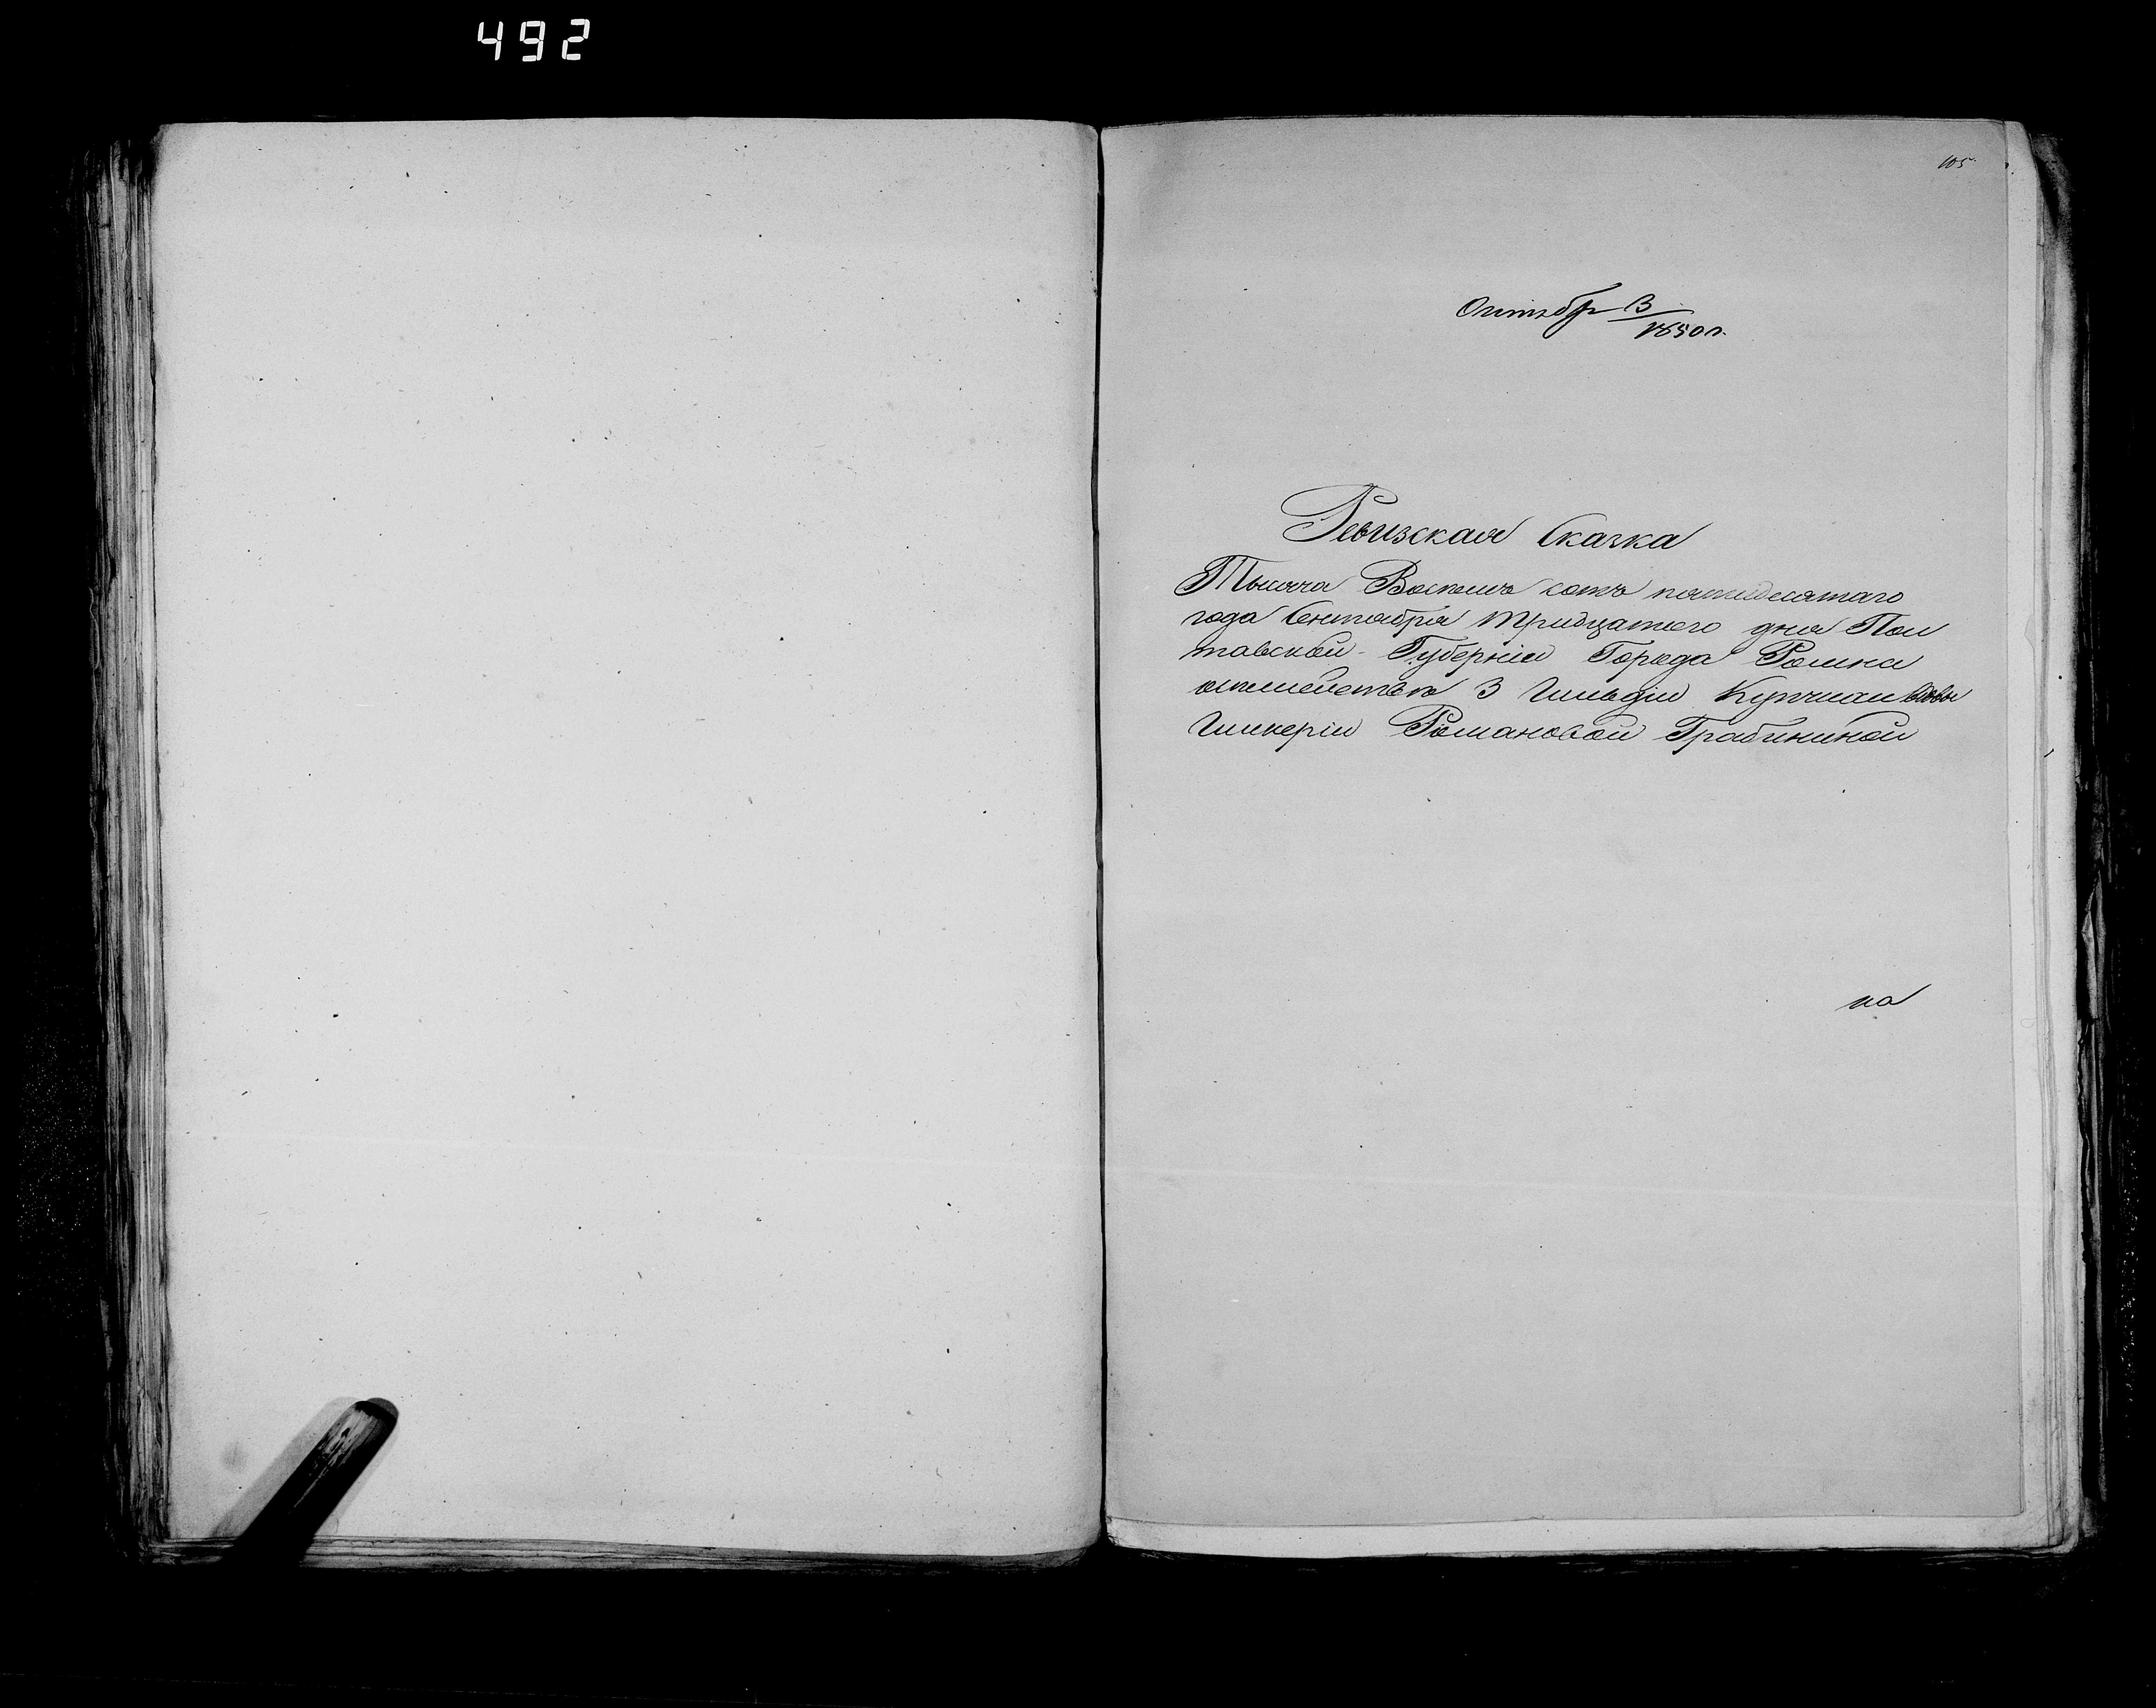 492
105
Октябр 3
1850 г.
Ревизская Сказка
Тысяча Восемь сотъ пятидесятаго
года Сентября тридцатого дня Пол
тавской Губерніи Города Ромна
3 Гильдіи Купчихи вдовы
Гликеріи Романовой Грабининой
на